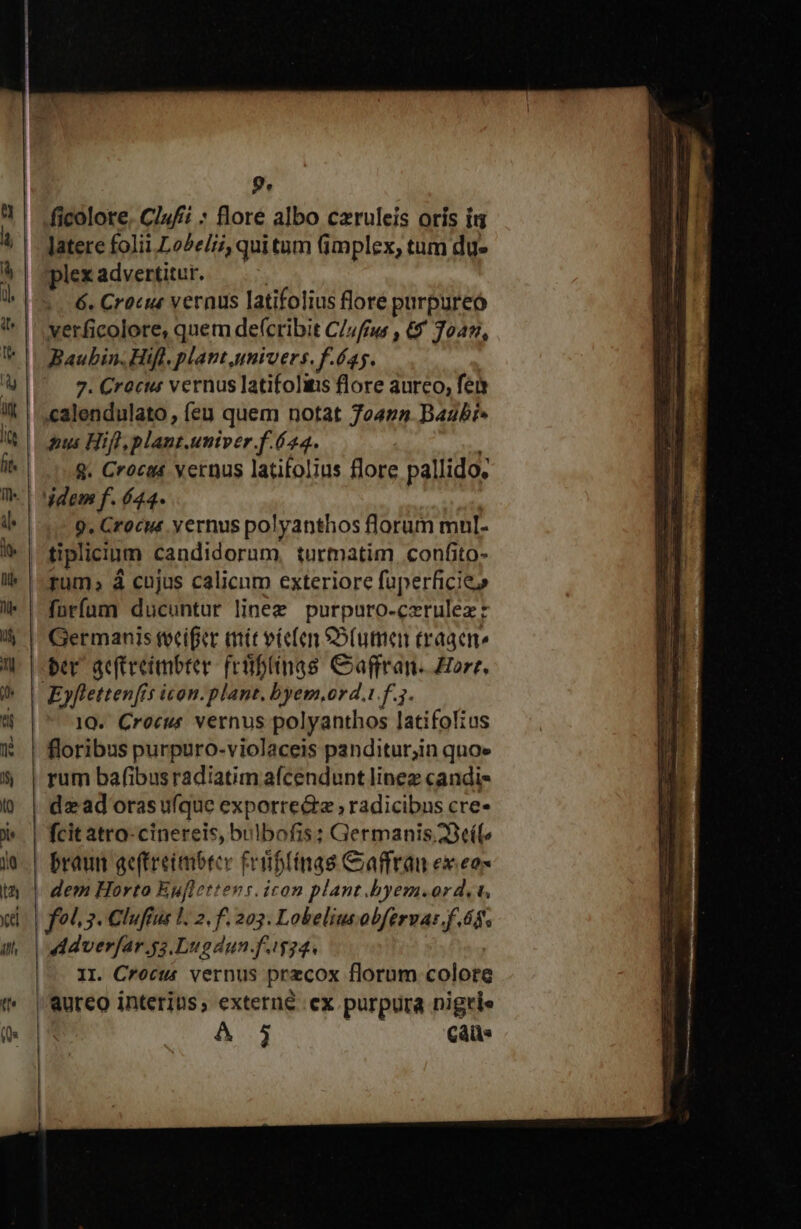 9.
ficolore. Cluſii : flore albo cæruleis oris in
latere folii Lobelii, qui tum ſimplex, tum du-
plex advertitur.
6. Crocus vernus latifolius flore purpureo
verſicolore, quem deſcribit Cluſius, & Joan,
Baubin. Hiſt. plant univers. f. 645.
7. Crocus vernus latifolius flore aureo, ſeu
calendulato, ſeu quem notat Joann Baubi-
nus Hiſt. plant. univer. f. 644.
8. Crocus vernus latifolius flore pallido,
idem f. 644.
9. Crocus vernus polyanthos florum mul-
tiplicium candidorum turmatim conſito-
rum, á cujus calicum exteriore ſuperficie
ſurſum ducuntur lineæ purpuro-cærulez:
Germanis weiſſer mit vielen Blumen tragen-
der geſtreimbter frühlings Saffran. Hort.
Eyſtettenſis icon. plant. byem. ord. 1. f. 3.
10. Crocus vernus polyanthos latifolius
floribus purpuro-violaceis panditur, in quo-
rum baſibus radiatim aſcendunt lineæ candi-
dæ ad oras uſque exporrectæ, radicibus cre-
ſcit atro-cinereis, bulboſis; Germanis Veil-
braun geſtreimbter frühlings Saffran ex eo-
dem Horto Euſtettens. icon plant. hyem. ord. 1,
fol, 3. Cluſius l. 2. f. 203. Lobelius obſervat. f. 68.
Adverſar. 53. Lugdun. f. 1534.
11. Crocus vernus præcox florum colore
aureo interius, externé ex purpura nigri-
A 5 cau-